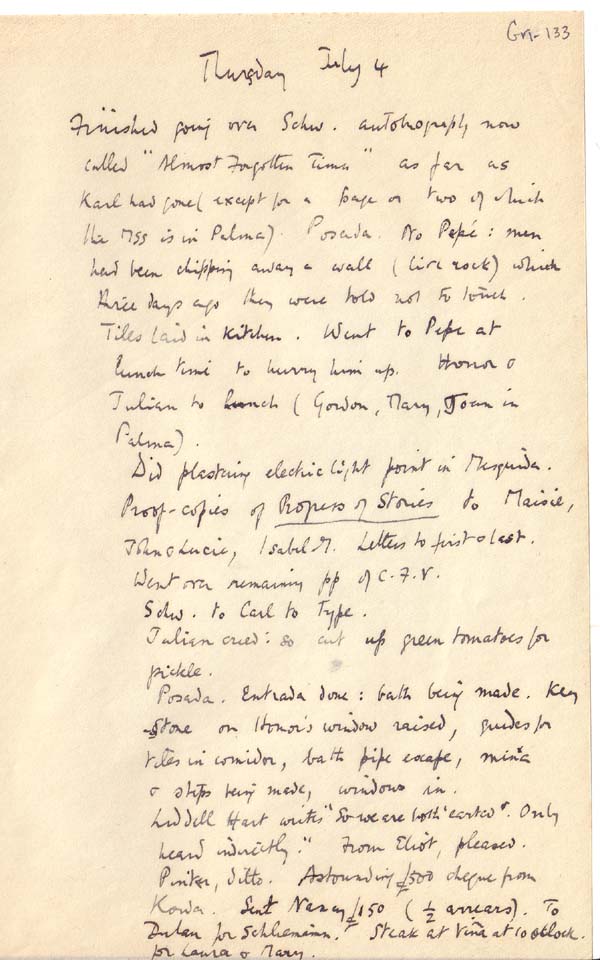 Gri-133
Thursday July 4
Finished going over Schw. autobiography now
called "Almost Forgotten Times" as far as
Karl had gone (except for a page or two of which
the MSS is in Palma). Posada. No Pepé: men
had been chipping away a wall (live rock) which
three days ago they were told not to touch.
Tiles laid in kitchen. Went to Pepe at
lunch time to hurry him up. Honor &
Julian to lunch (Gordon, Mary, Joan in
Palma).
Did plastering electric light point in Mesquida.
Proof-copies of Progress of Stories to Maisie,
John & Lucie, Isabel M. Letters to first & last.
Went over remaining pp of C.F.V.
Schw. to Carl to Type.
Julian cried: so cut up green tomatoes for
pickle.
Posada. Entrada done: bath being made. Key
stone on Honor's window raised, guides for
tiles in corridor, bath pipe escape, mina
& steps being made, windows in.
Liddell Hart writes "So we are both 'earted'. Only
heard indirectly." From Eliot, pleased.
Pinker, ditto. Astounding £500 cheque from
Korda. Sent Nancy £150 (½ arrears). To
for Schliemann. Steak at Viña at 10 oclock.
for Laura & Mary.